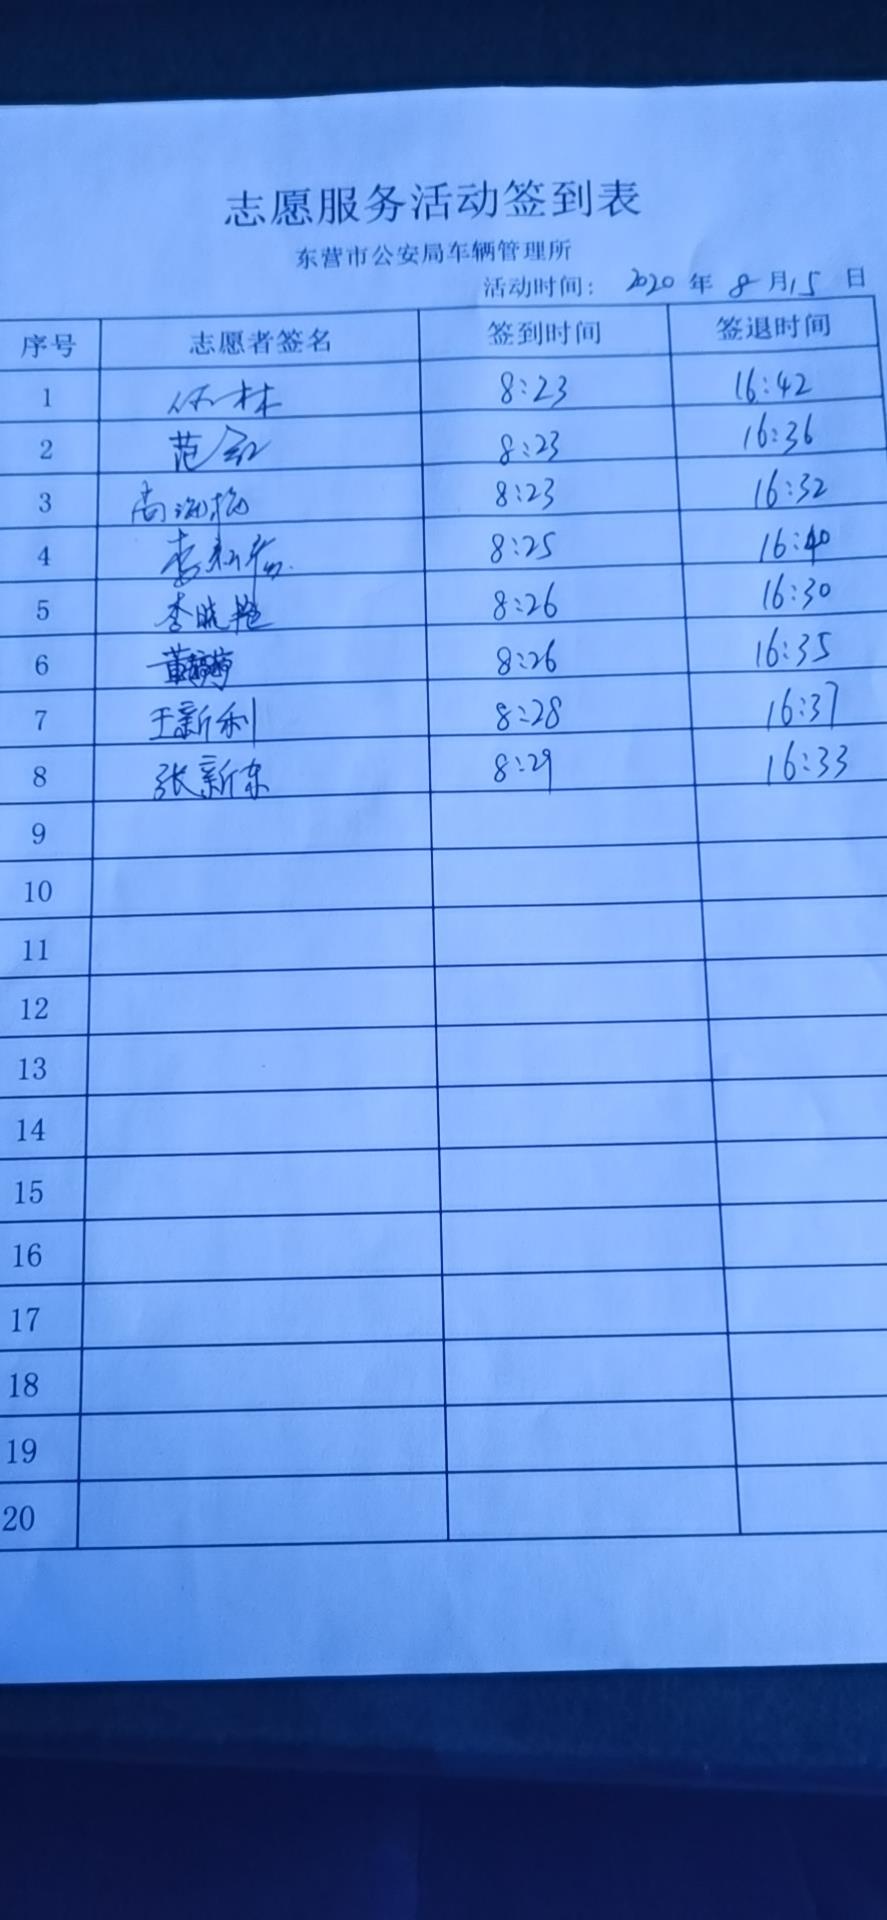 志愿服务活动签到表
东营市公安局车辆管理所
活动时间： 2020 年 8 月 15 日
序号 志愿者签名 签到时间 签退时间
1 林 8:23 16:42
2 范红 8:23 16:36
3 尚海 8:23 16:32
4 李 8:25 16:40
5 李晓艳 8:26 16:30
6 董 8:26 16:35
7 王新利 8:28 16:37
8 张新东 8:29 16:33
9
10
11
12
13
14
15
16
17
18
19
20